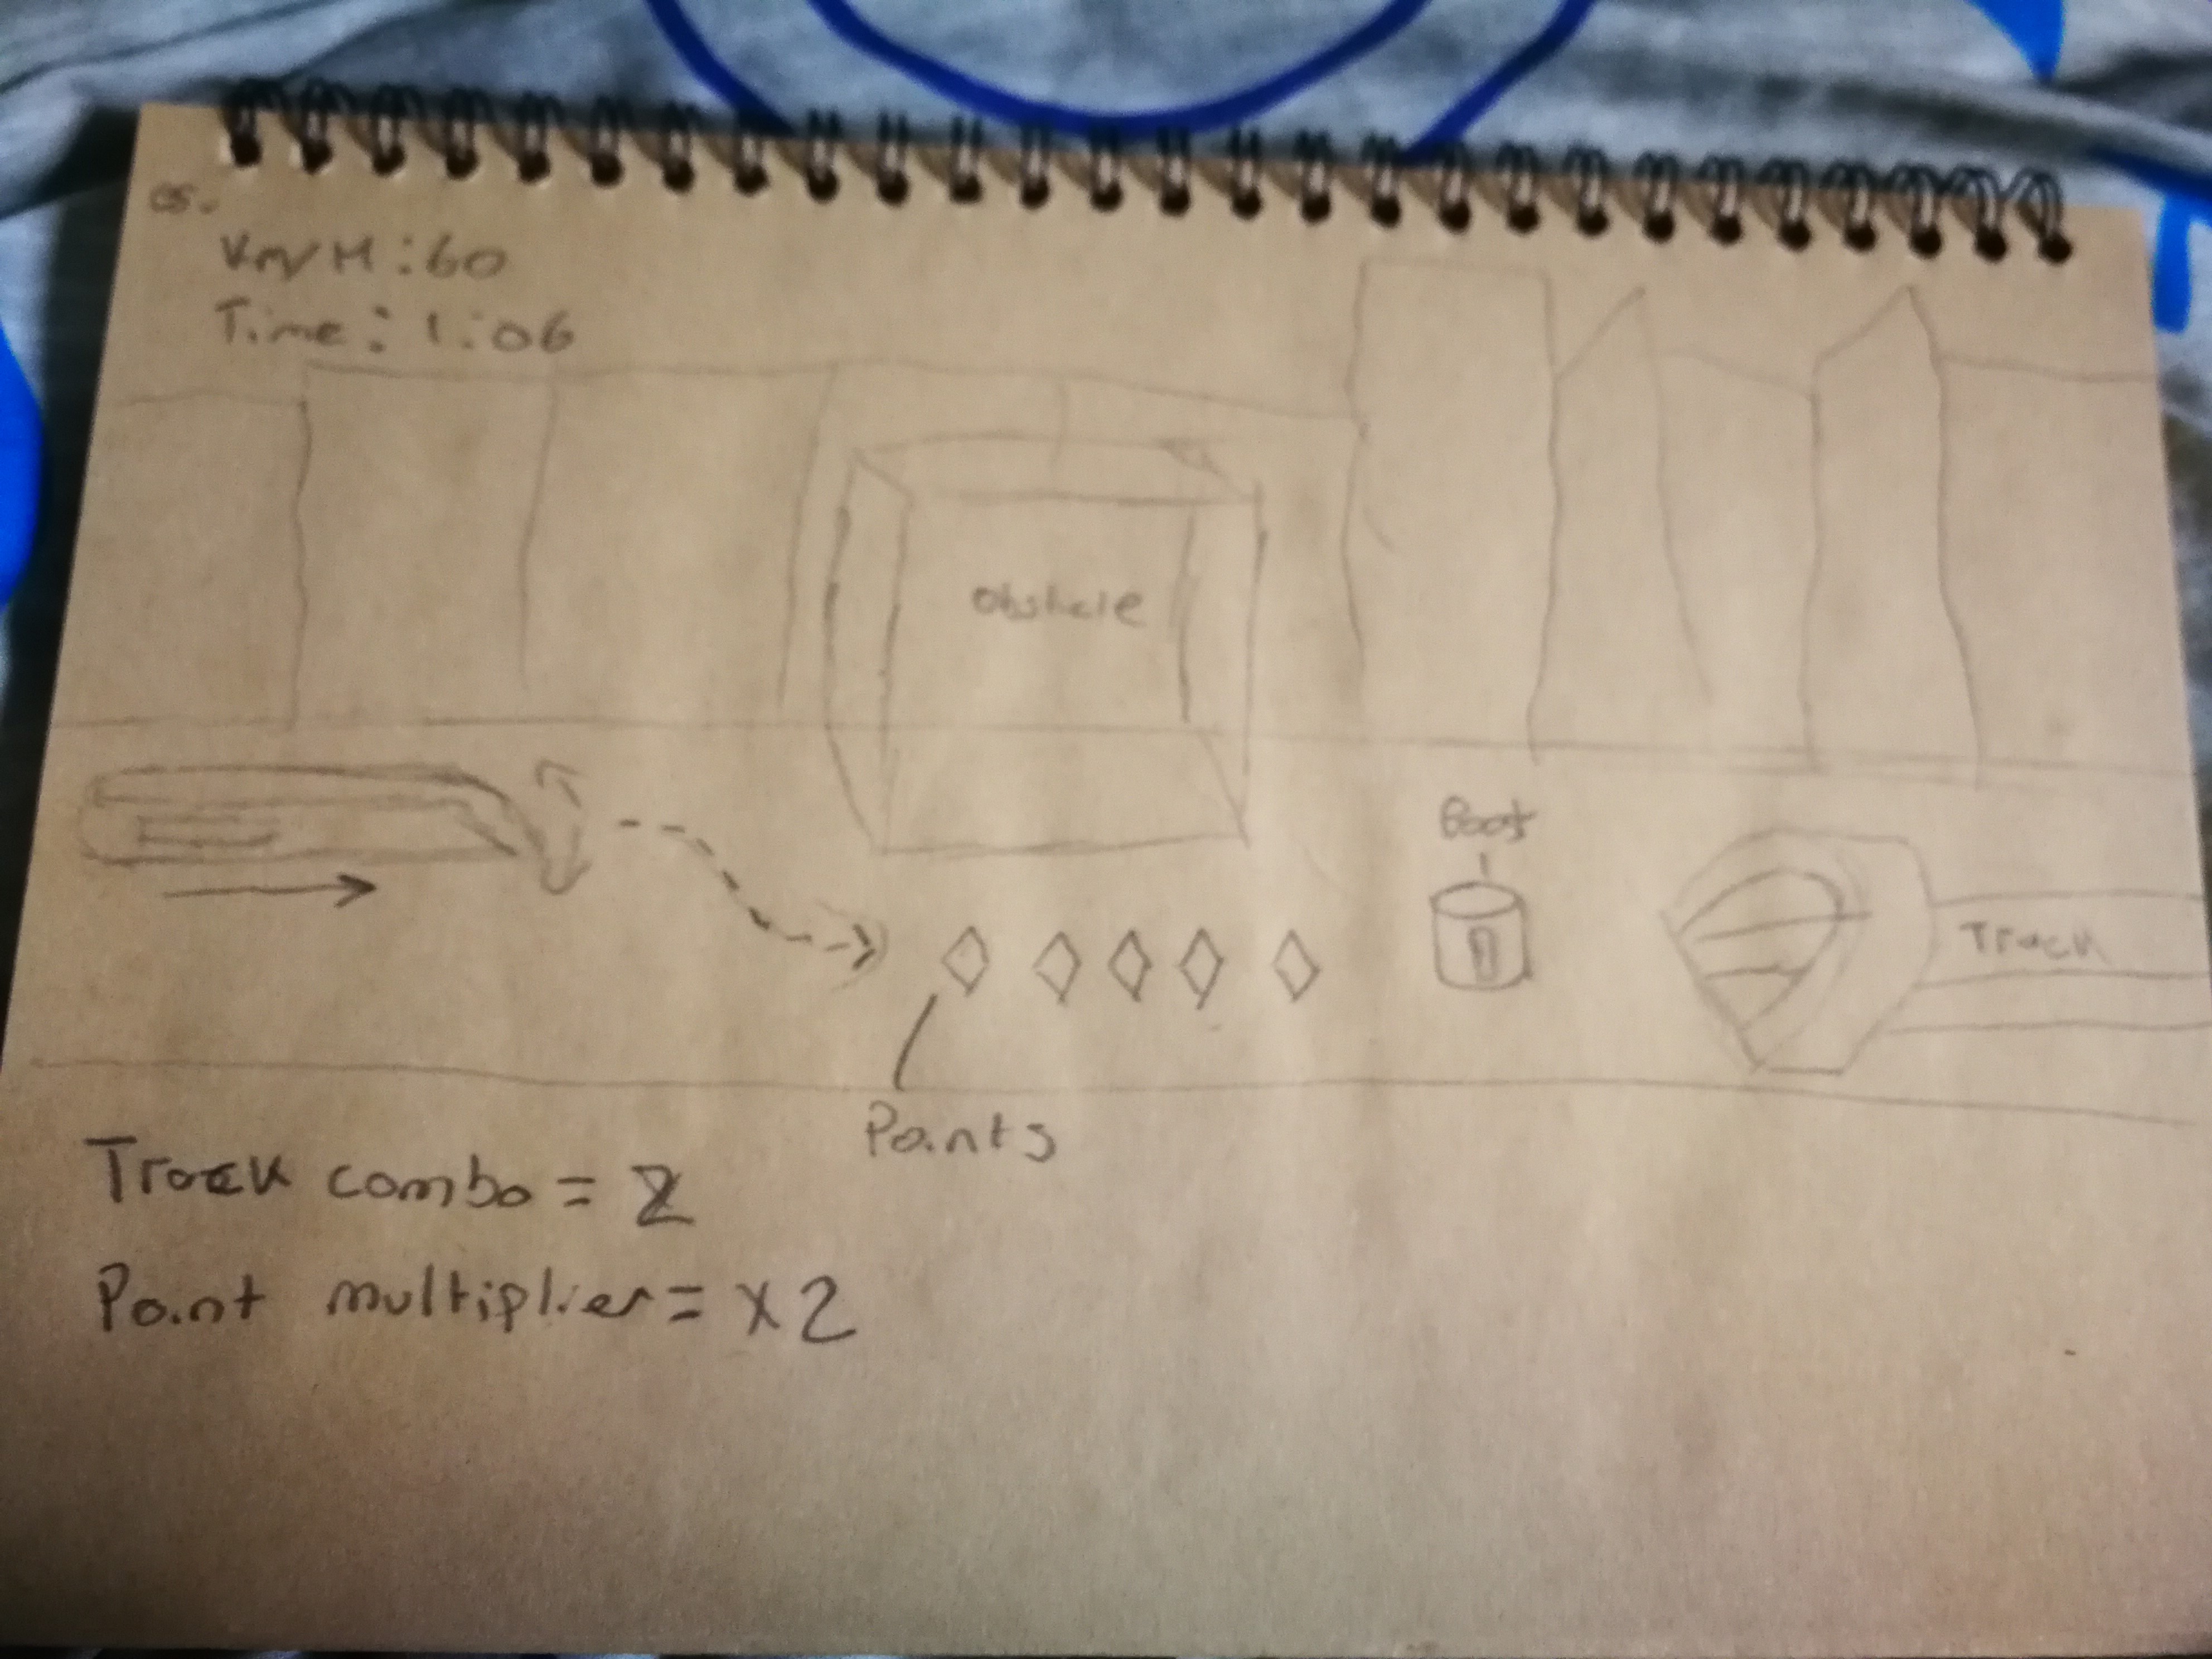 Km/H : 60
Time : 1:06
Obstacle
Boost
Track
Points
Track combo = 2
Point multiplier = x2